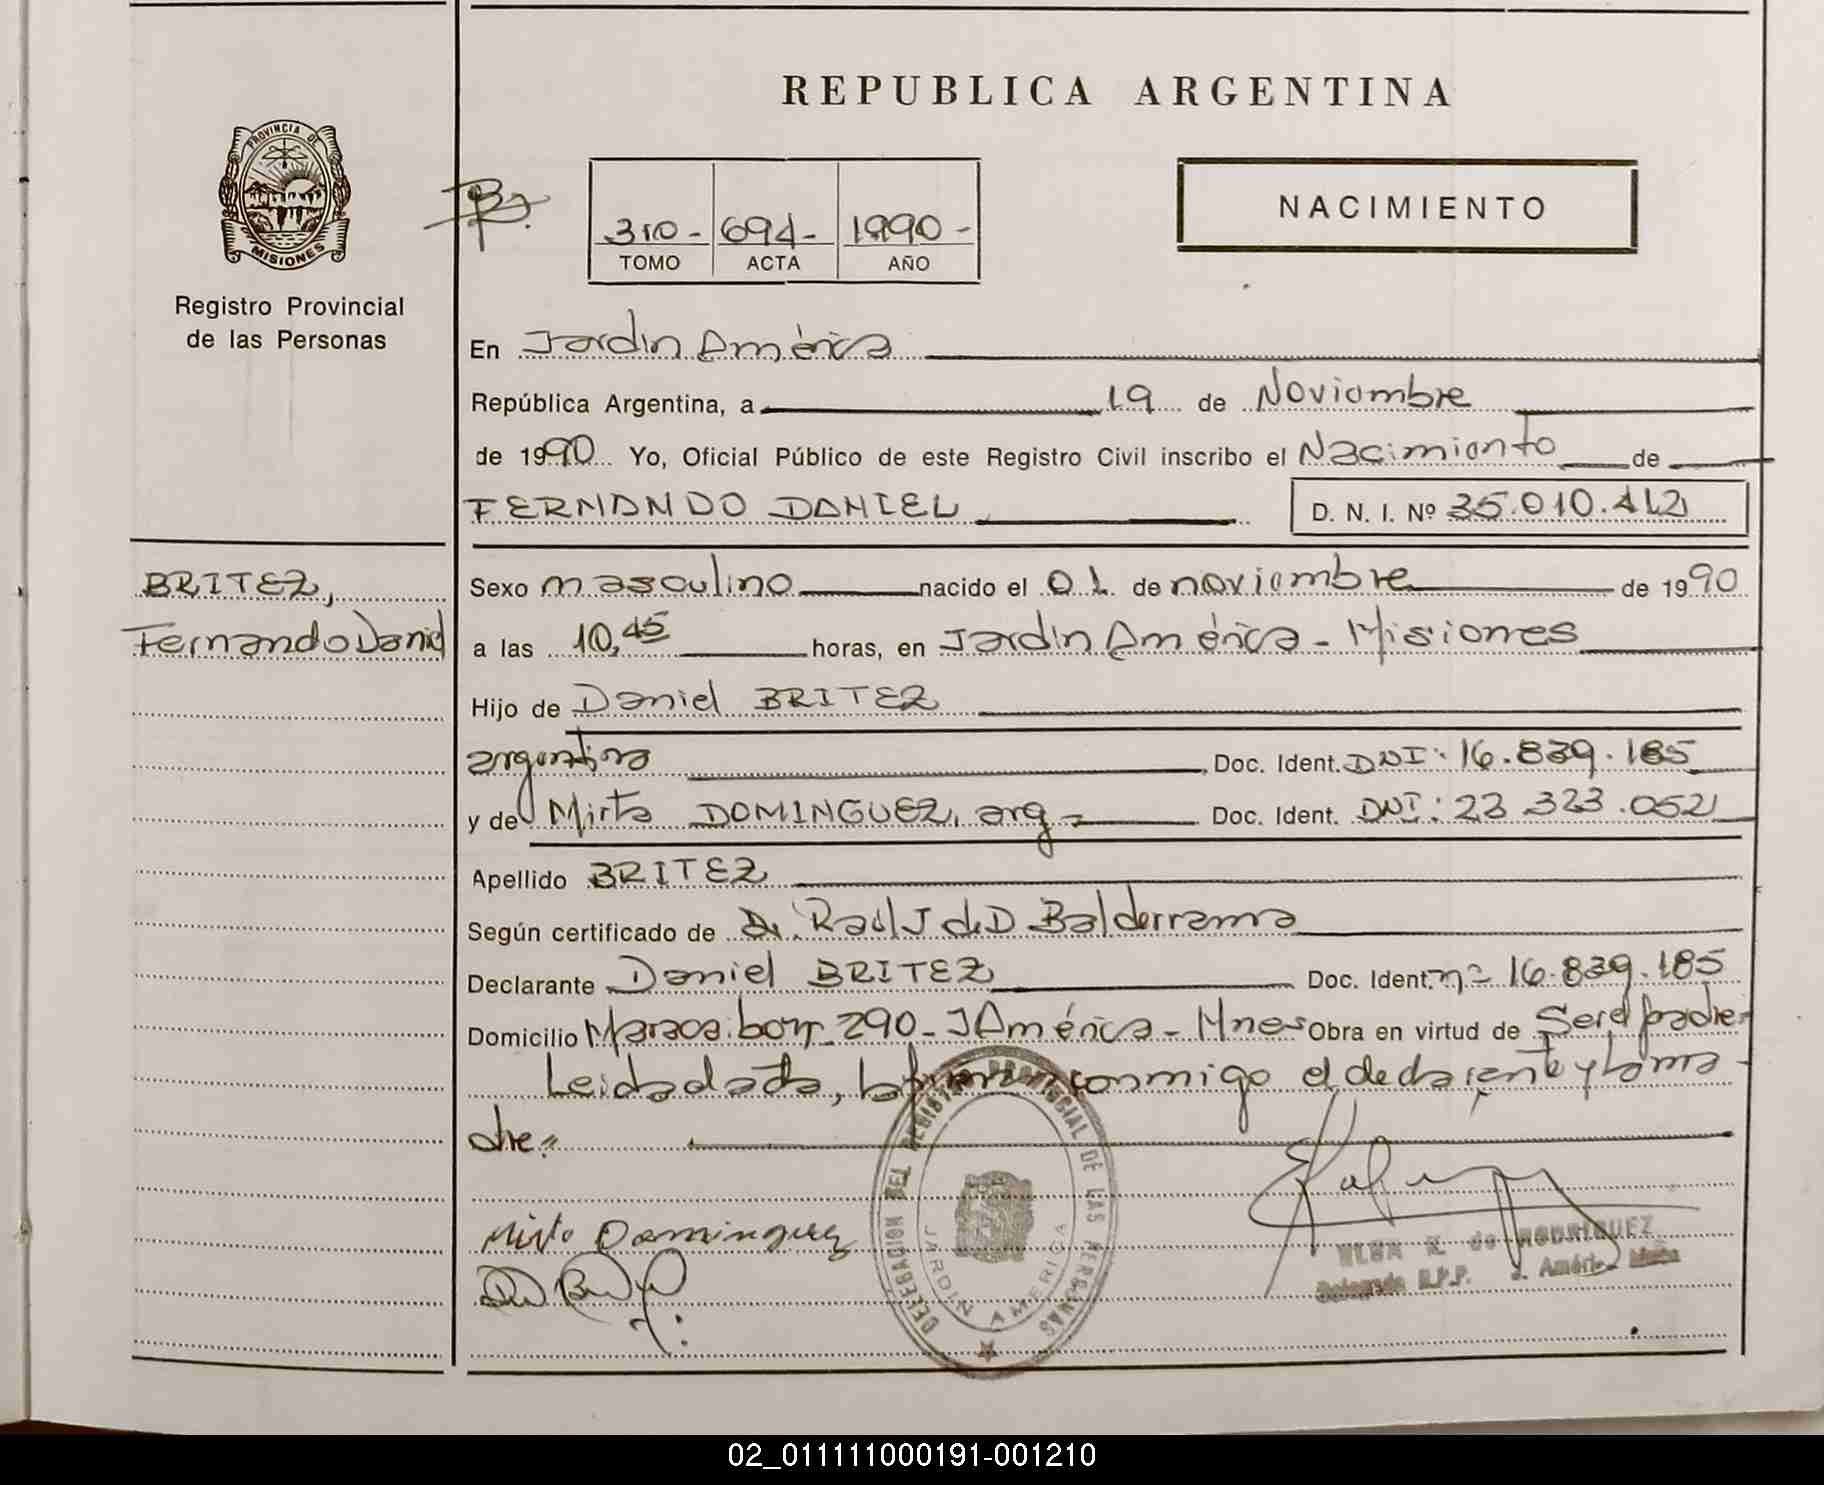 REPUBLICA ARGENTINA
PROVINCIA DE
MISIONES
Registro Provincial
de las Personas
310- 694- 1990-
TOMO ACTA AÑO
NACIMIENTO
En Jardin América
República Argentina, a 19 de Noviembre
de 1990 Yo, Oficial Público de este Registro Civil inscribo el Nacimiento de
FERNANDO DANIEL D. N. I. Nº 35.010.412
BRITEZ,
Fernando Daniel
Sexo masculino nacido el 01 de noviembre de 1990
a las 10,45 horas, en Jardin América - Misiones
Hijo de Daniel BRITEZ
argentina Doc. Ident. DNI: 16.839.185
y de Mirta DOMINGUEZ, arg - Doc. Ident. DNI: 23 323.052
Apellido BRITEZ
Según certificado de Dr. Raúl J de D Balderrama
Declarante Daniel BRITEZ Doc. Ident. nº 16.839.185
Domicilio 290 - J América - Mnes Obra en virtud de Ser el padre-
Leida el acta, la firman conmigo el declarante y la ma-
dre=
Mirta Dominguez
DELEGACION DEL REGISTRO PROVINCIAL DE LAS PERSONAS
JARDIN AMERICA
ELBA K. de RODRIGUEZ
Delegada R.P.P. J. América
02_011111000191-001210